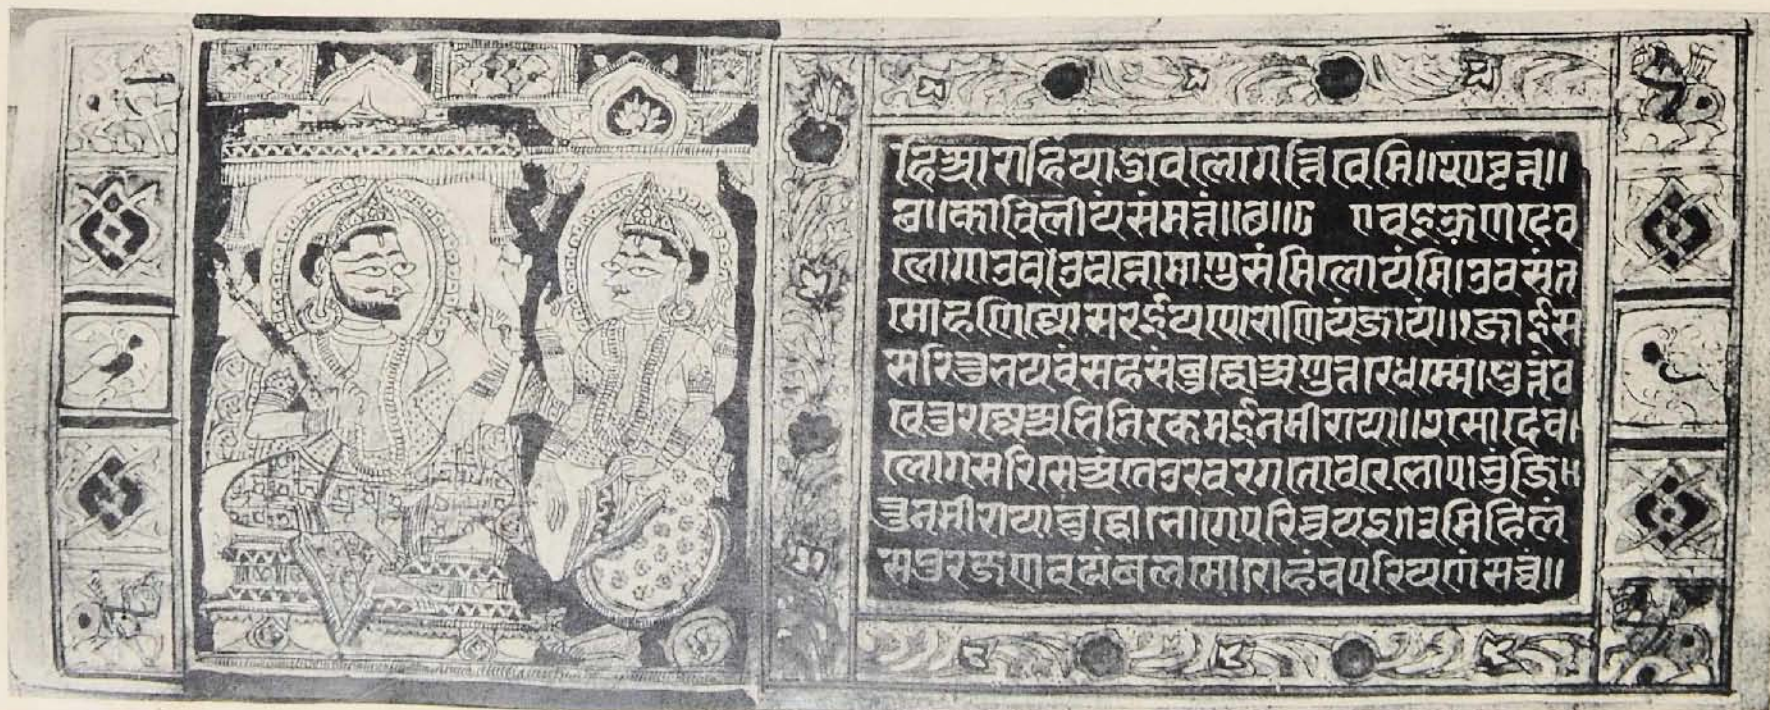 हिं आराहिया डुवे लोग त्ति बेमि॥२०
काविलीयं संमत्तं॥छ॥ चइऊण देव
लोगाउ उववन्नो माणुसंमि लोयंमि।उवसंत
मोहणिज्जो सरई य पोराणियं जायं॥१जाई स
सरित्तु भयवं सहसंबुद्धो अणुत्तरे धम्मे।पुत्तं ठ
वित्तु रज्जे अभिनिरकमई नमीराया॥२सो देव
लोगसरिसे अंतेउरवरगतो वरे भोए।भुंजि
त्तु नमीराया बुद्धो भोगे परिच्चयइ॥३मिहिलं
सपुरजणवयं बलमोरोहं च परियणं सव्वं॥